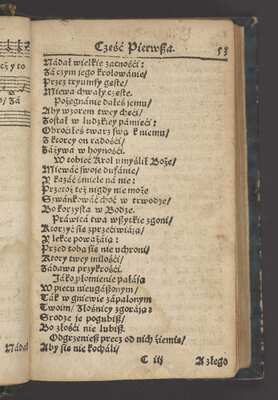 Cześć Pierwsza. 53
Nádał wielkie zacności:
Za czym iego krolowánie/
Przez tryumfy gęste/
Miewa chwały częste.
Pożegnánie dałeś iemu/
Aby wzorem twey chęci/
Został w ludzkiey pámięci:
Obroćiłeś twarz swą k niemu/
Z ktorey on rádośći/
Záżywa w hoynośći.
W tobieć Krol umyślił Boże/
Miewáć swoie dufánie/
Y kázáć śmiele ná nie:
Przetoż też nigdy nie może
Szwánkowáć choć w trwodze/
Bo korzysta w Bodze.
Práwicá twa wszytkie zgoni/
Ktorzyć się sprzećiwiáią/
Y lekce poważáią:
Przed tobą się nie uchroni/
Ktory twey miłośći/
Zádawa przykrośći.
Jáko płomienie pałáią
W piecu nieugászonym/
Ták w gniewie zápalonym
Twoim/ Złośnicy zgoráią:
Srodze ie pogubisz/
Bo złośći nie lubisz.
Odgrzeniesz precz od nich źiemię/
Aby się nie kocháli/
C iij A złego
Nádał